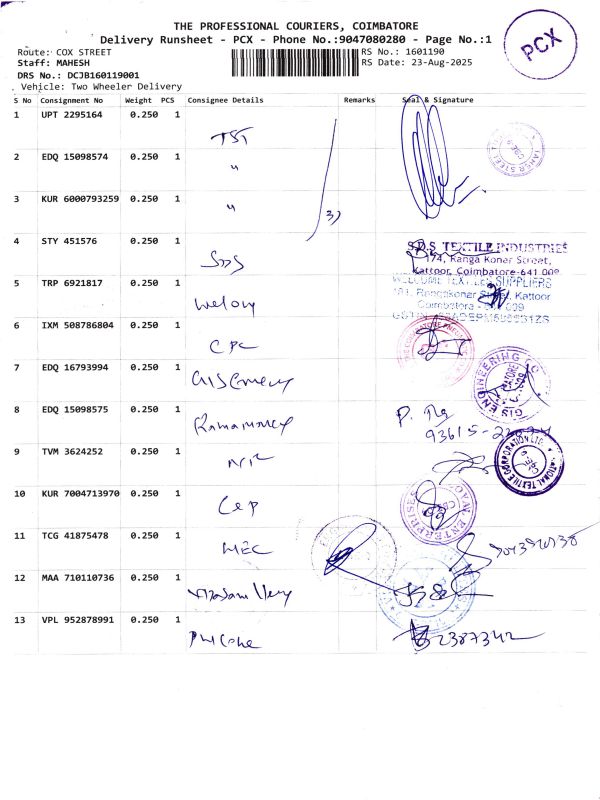 THE PROFESSIONAL COURIERS, COIMBATORE
Delivery Runsheet - PCX - Phone No.:9047080280 - Page No.:1
PCX
Route: COX STREET
RS No.: 1601190
Staff: MAHESH
RS Date: 23-Aug-2025
DRS No.: DCJB160119001
Vehicle: Two Wheeler Delivery
S No Consignment No Weight PCS Consignee Details Remarks Seal & Signature
1 UPT 2295164 0.250 1 TST
2 EDQ 15098574 0.250 1 "
3 KUR 6000793259 0.250 1 " 3)
4 STY 451576 0.250 1 SDS
S.D.S TEXTILE INDUSTRIES
174, Ranga Konar Street,
Kattoor, Coimbatore-641 009
5 TRP 6921817 0.250 1
WELCOME TEXTILES SUPPLIERS
Rangakonar Street, Kattoor
Coimbatore
6 IXM 508786804 0.250 1 CPC
7 EDQ 16793994 0.250 1
GIS ENGINEERING CO
8 EDQ 15098575 0.250 1
9 TVM 3624252 0.250 1
NATIONAL TEXTILE CORPORATION LTD.
10 KUR 7004713970 0.250 1 CEP
ROYAL ENTERPRISES
11 TCG 41875478 0.250 1 MEC
12 MAA 710110736 0.250 1
13 VPL 952878991 0.250 1